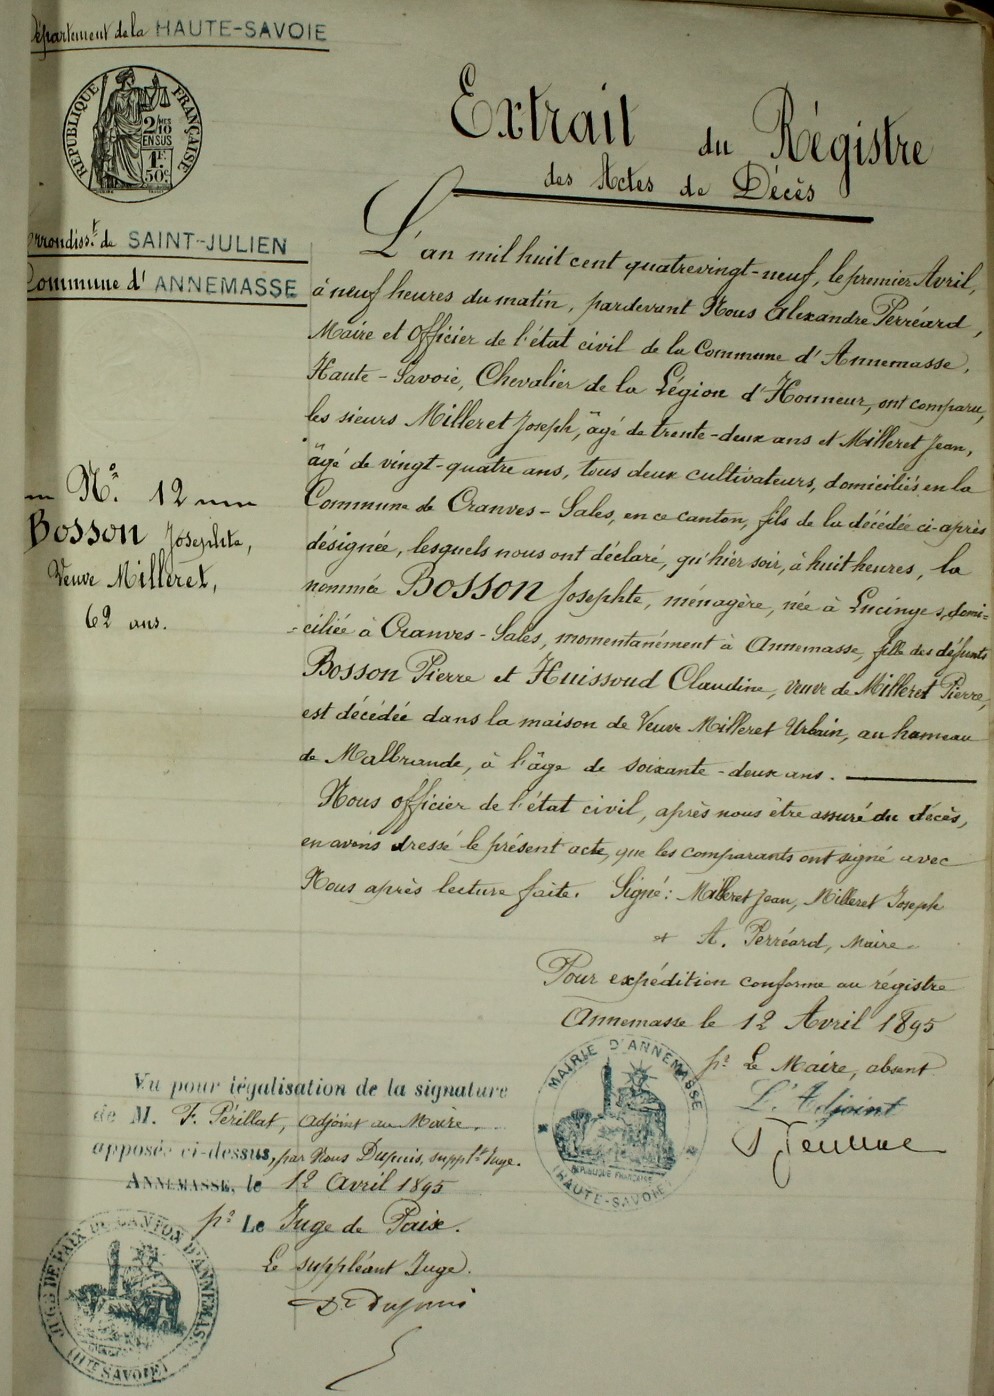 Département de la HAUTE-SAVOIE
RÉPUBLIQUE FRANÇAISE
2/MES
10
EN SUS
1F.
50c.
Extrait du Régistre
des Actes de Décès
Arrondisst. de SAINT-JULIEN
Commune d' ANNEMASSE
L'an mil huit cent quatrevingt-neuf, le premier Avril,
à neuf heures du matin, pardevant Nous Alexandre Perréard,
Maire et Officier de l'état civil de la Commune d'Annemasse,
Haute-Savoie, Chevalier de la Légion d'Honneur, ont comparu,
les sieurs Milleret Joseph, âgé de trente-deux ans et Milleret Jean,
âgé de vingt-quatre ans, tous deux cultivateurs, domiciliés en la
Commune de Cranves-Sales, en ce canton, fils de la décédée ci-après
désignée, lesquels nous ont déclaré, qu'hier soir, à huit heures, la
nommée BOSSON Josephte, ménagère, née à Lucinges, domi=
=ciliée à Cranves-Sales, momentanément à Annemasse, fille des défunts
BOSSON Pierre et Huissoud Claudine, veuve de Milleret Pierre,
est décédée dans la maison de Veuve Milleret Urbain, au hameau
de Malbrande, à l'âge de soixante-deux ans.
Nous officier de l'état civil, après nous être assuré du décès,
en avons dressé le présent acte, que les comparants ont signé avec
Nous après lecture faite. Signé: Milleret Jean, Milleret Joseph
& A. Perréard, Maire.
Nº. 12
BOSSON Josephte,
Veuve Milleret,
62 ans.
Pour expédition conforme au régistre
Annemasse le 12 Avril 1895
pr. Le Maire, absent
L'Adjoint
MAIRIE D'ANNEMASSE
RÉPUBLIQUE FRANÇAISE
(HAUTE-SAVOIE)
Vu pour légalisation de la signature
de M. F. Périllat, adjoint au Maire,
apposée ci-dessus, par Nous Dupuis, supplt. Juge.
ANNEMASSE, le 12 Avril 1895
pr. Le Juge de Paix.
Le suppléant Juge.
Dr Dupuis
JUGE DE PAIX DU CANTON D'ANNEMASSE
(HTE SAVOIE)